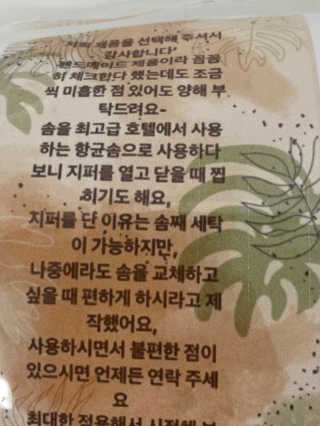 저희 제품을 선택해 주셔서
감사합니다^
핸드메이드 제품이라 꼼꼼
히 체크한다 했는데도 조금
씩 미흡한 점 있어도 양해 부
탁드려요~
솜을 최고급 호텔에서 사용
하는 항균솜으로 사용하다
보니 지퍼를 열고 닫을 때 찝
히기도 해요,
지퍼를 단 이유는 솜째 세탁
이 가능하지만,
나중에라도 솜을 교체하고
싶을 때 편하게 하시라고 제
작했어요,
사용하시면서 불편한 점이
있으시면 언제든 연락 주세
요
최대한 적용해서 시정해 보